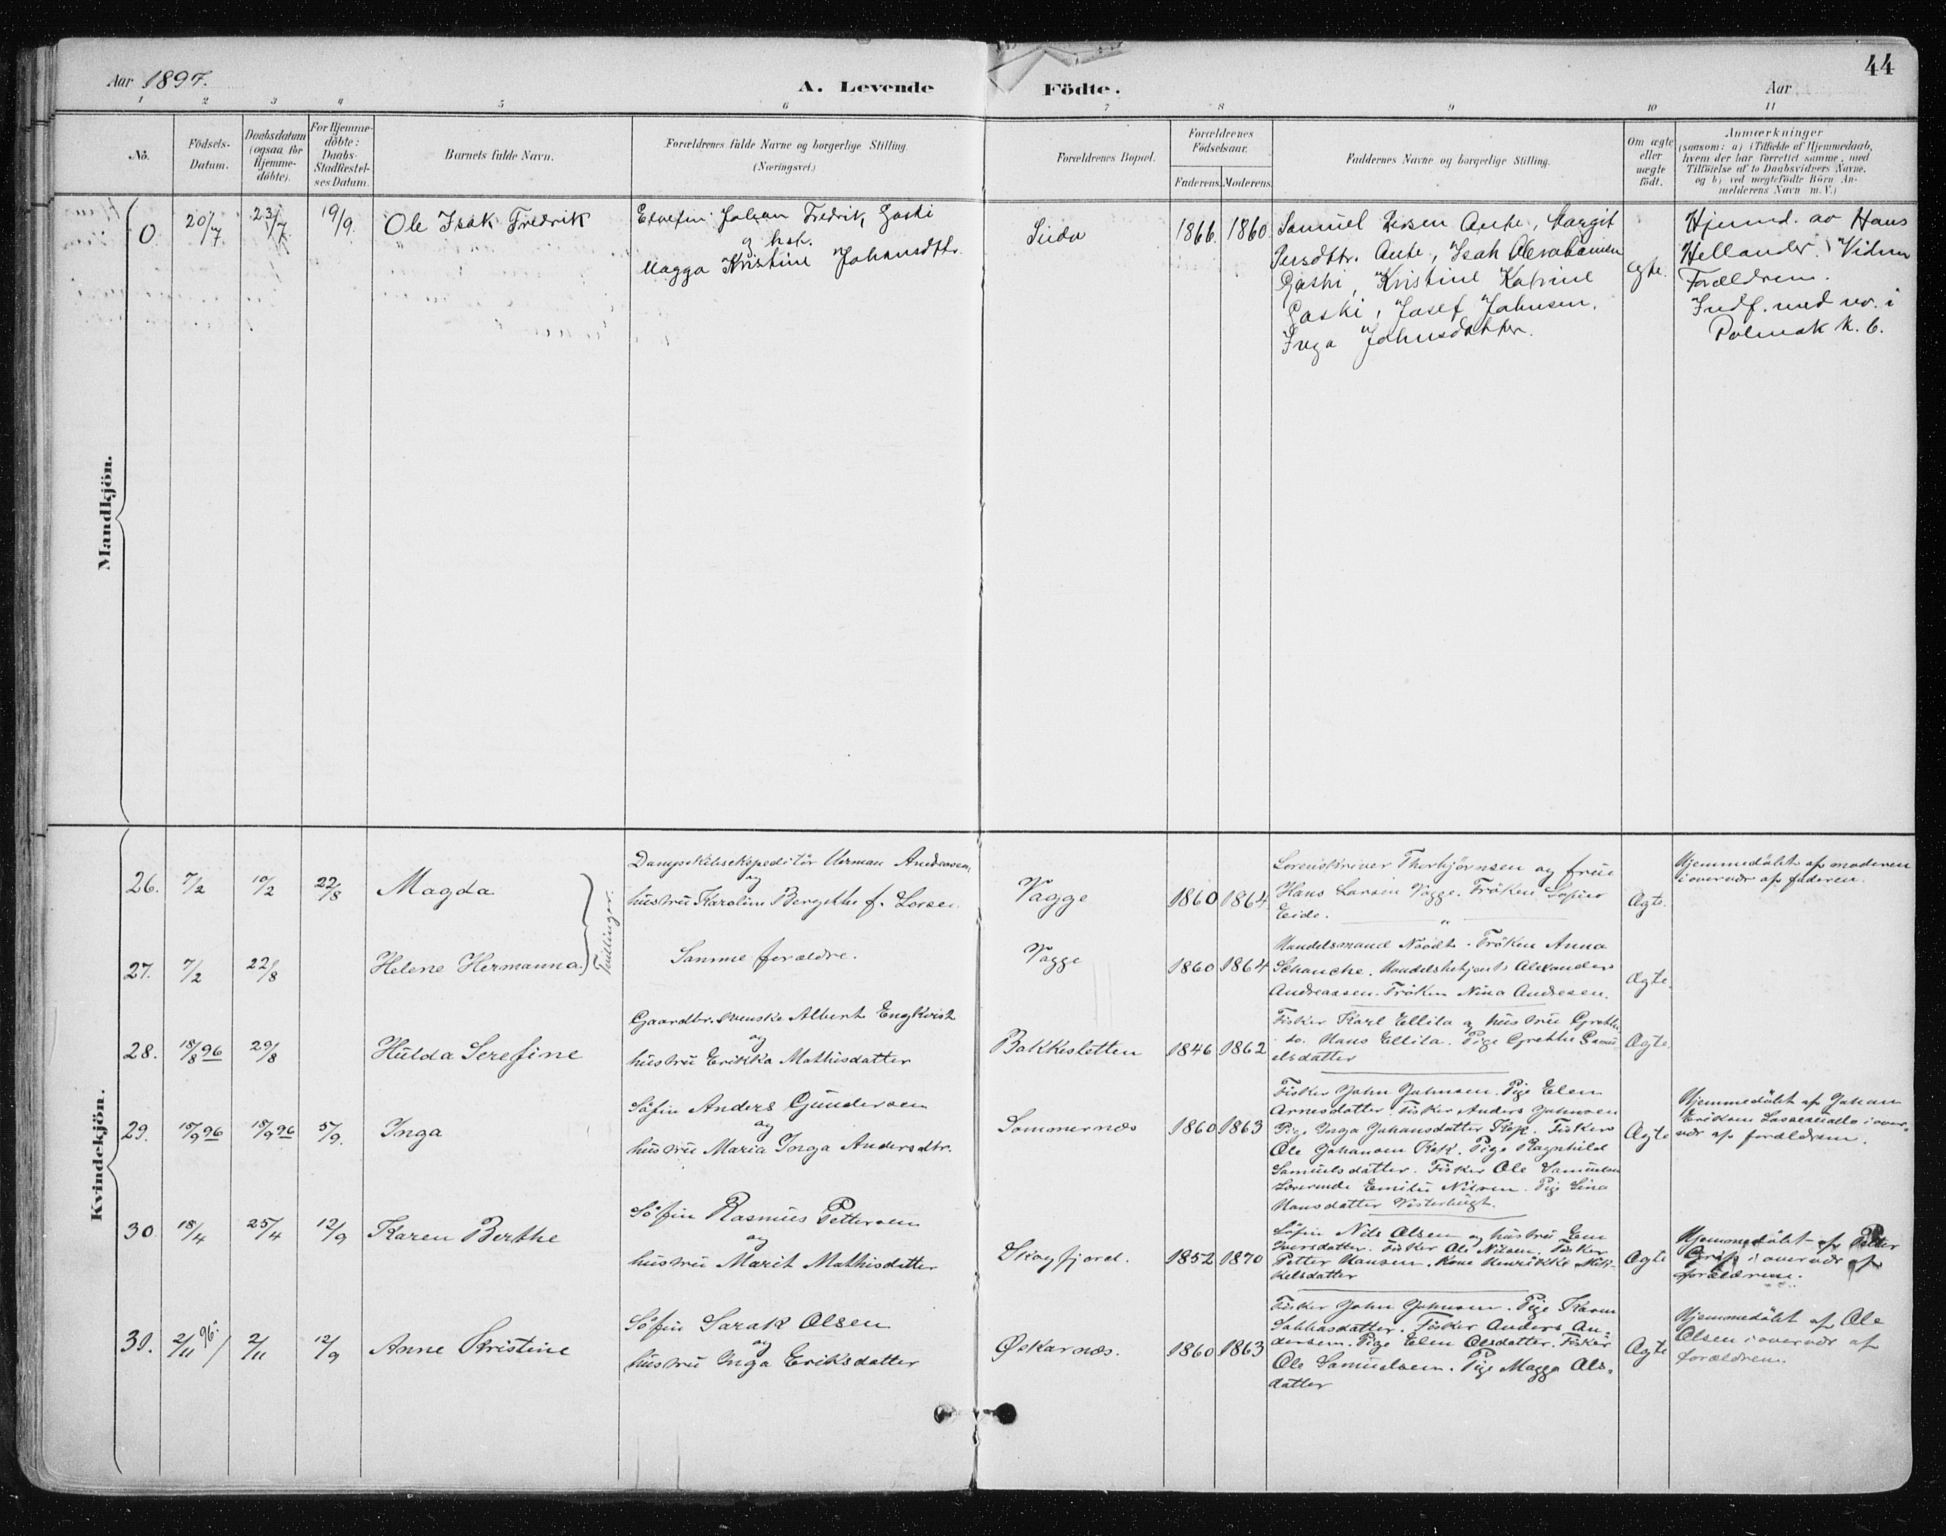 44
Aar 1897. A. Levende Födte. Aar
1 2 3 4 5 6 7 8 9 10 11
No. Födsels-Datum. Daabsdatum (ogsaa for Hjemme-döbte). For Hjemme-döbte: Daabs-Stadfæstel-ses Datum. Barnets fulde Navn. Forældrenes fulde Navne og borgerlige Stilling (Næringsvei.) Forældrenes Bopæl. Forældrenes Födselsaar. Faderens. Moderens. Faddernes Navne og borgerlige Stilling. Om ægte eller uægte födt. Anmærkninger (saasom: a) i Tilfælde af Hjemmedaab, hvem der har forrettet samme, med Tilföielse af to Daabsvidners Navne, og b) ved uægtefödte Börn Anmelderens Navn m. V.)
Mandkjön.
0 20/7 23/7 19/9. Ole Isak Fredrik
Johan Fredrik Gaski
og hstr.
Magga Kristine Johansdtr.
Sida 1866. 1860
Samuel Ante, Margit
Persdtr. Ante, Isak Abrahamsen
Gaski, Kristine Katrine
Gaski, Josef Johnsen,
Inga Johnsdatter.
ægte.
Hjemmd. av Hans
Hellander. Vidner
Forældrene.
Indf. med no. i
Polmak k. b.
Kvindekjön.
26. 7/2 10/2 22/8 Magda
Tvillinger.
Dampskibsekspeditör Herman Andreasen,
og
hustru Karoline Bergithe f.
Vagge 1860 1864
Sorenskriver Thorbjörnsen og frue
Hans Larsen Vagge. Fröken
Eide.
Ægte.
Hjemmedöbt af moderen
i overvær af faderen.
27. 7/2 22/8 Helene Hermanna.
Samme forældre.
Vagge 1860 1864
Handelsmand Noodt. Fröken Anna
Schanche. Handelsbetjent Alexander
Andreassen. Fröken Nina Andresen.
Ægte.
28. 18/8 96 29/8 Hulda Serefine
Gaardbr. svenske Albert Engkvist
og
hustru Erikka Mathisdatter
Bakkesletten 1846 1862
Fisker Karl Ellila og hustru Grethe
do. Hans Ellila. Pige Grethe Samu-
elsdatter
Ægte.
29. 15/9 96 15/9 96 5/9. Inga
Söfin Anders Gundersen
og
hustru Maria Inga Andersdtr.
Sommernæs 1860 1863
Fisker John Johnsen. Pige Elen
Arnesdatter. Fisker Anders Johnsen
Pige Inga Johansdatter Fisker
Ole Johansen Pige Ragnhild
Samuelsdatter. Fisker Ole Samuelsen
Emilie Nilsen. Pige Lina
Hansdatter
Ægte
Hjemmedöbt af Johan
Eriksen i over-
vær af forældrene.
30. 18/4 25/4 12/9 Karen Berthe
Söfin Rasmus Pettersen
og
hustru Marit Mathisdatter
Skogfjord. 1852 1870
Söfin Nils Olsen og hustru Elen
Iversdatter. Fisker Ole Nilsen. Fisker
Petter Hansen. Kone Henrikke Mik-
kelsdatter
Ægte
Hjemmedöbt af Petter
i overvær af
forældrene.
31. 2/11 96. 2/11 12/9 Anne Kristine
Söfin Sarak Olsen
og
hustru Inga Eriksdatter
Øskarnæs. 1860 1863
Fisker John Johnsen. Pige Karen
Fisker Anders An-
dersen. Pige Elen Olsdatter. Fisker
Ole Samuelsen. Pige Magga Ols-
datter
Ægte
Hjemmedöbt af Ole
Olsen i overvær af
forældrene.